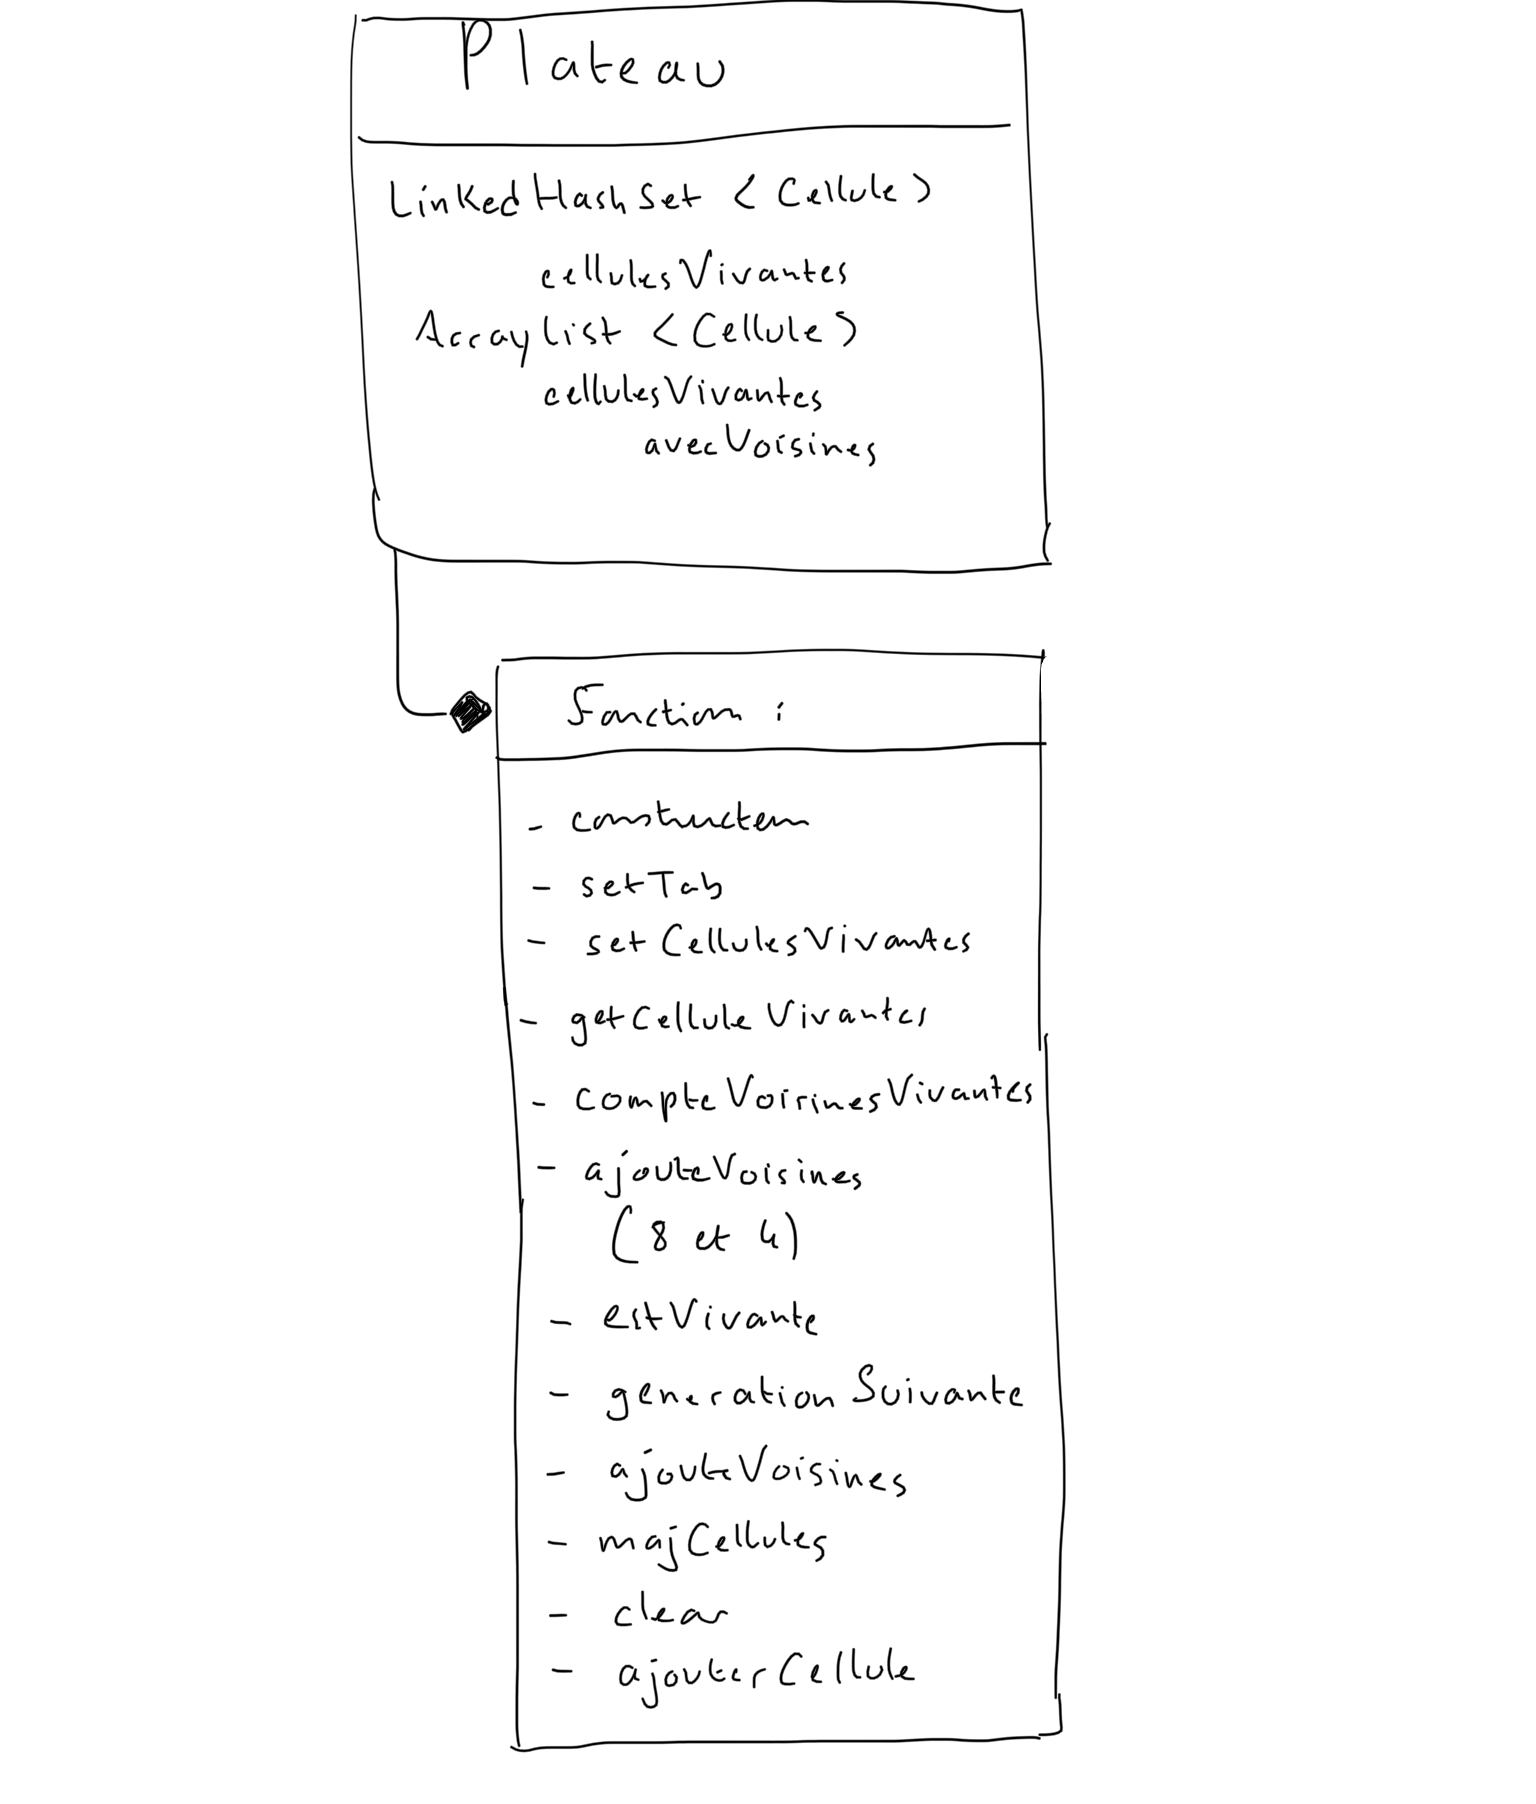 Plateau
LinkedHashSet < Cellule >
cellulesVivantes
ArrayList < Cellule >
cellulesVivantes
avecVoisines
Fonction :
- constructeur
- setTab
- setCellulesVivantes
- getCelluleVivantes
- compteVoisinesVivantes
- ajouteVoisines
(8 et 4)
- estVivante
- generationSuivante
- ajouteVoisines
- majCellules
- clear
- ajouterCellule